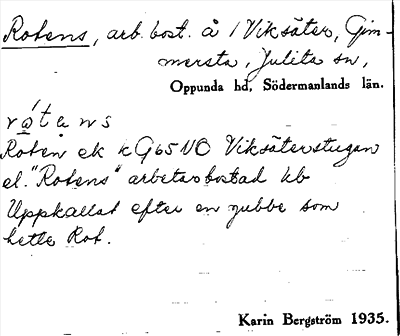 Rotens, arb. bost. å 1 Viksäter, Gim-
mersta, Julita sn,
Oppunda hd, Södermanlands län.
rỏtens
Roten ek kG65NO Viksäterstugan
el. "Rotens" arbetarbostad kb
Uppkallat efter en gubbe som
hette Rot.
Karin Bergström 1935.